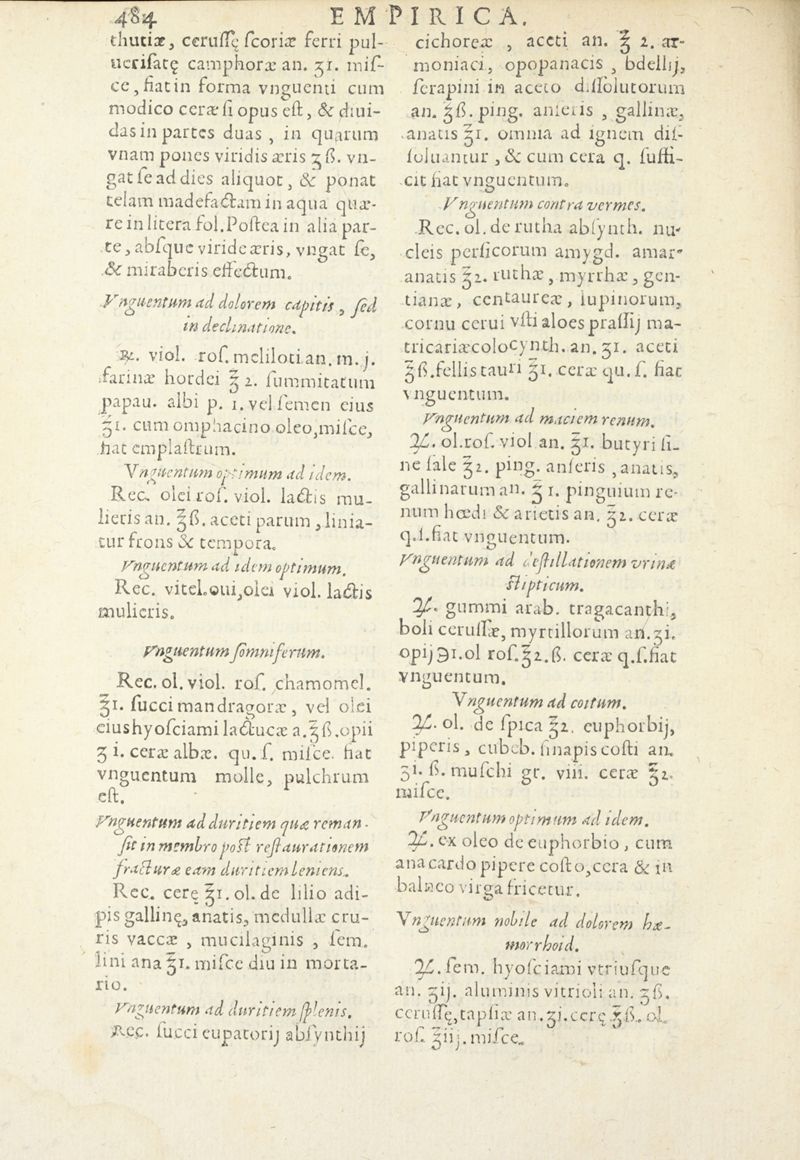 484 EMPIRICA.
thutiæ, ceruſſę ſcoriæ ferri pul-
ueriſatę camphoræ an. ʒ1. miſ-
ce, fiat in forma vnguenti cum
modico ceræ ſi opus eſt, & diui-
das in partes duas, in quarum
vnam pones viridis æris ʒß. vn-
gat ſe ad dies aliquot, & ponat
telam madefactam in aqua quæ-
re in litera fol. Poſtea in alia par-
te, abſque viride æris, vngat ſe,
& miraberis effectum.
Vnguentum ad dolorem capitis, ſed
in declinatione.
℞. viol. roſ. meliloti. an. m. j.
farinæ hordei ℥ 2. ſummitatum
papau. albi p. 1. vel ſemen eius
℥1. cum omphacino oleo, miſce,
fiat emplaſtrum.
Vnguentum optimum ad idem.
Rec. olei roſ. viol. lactis mu-
lieris an. ℥ß. aceti parum, linia-
tur frons & tempora.
Vnguentum ad idem optimum.
Rec. vitel. oui, olei viol. lactis
mulieris.
Vnguentum ſomniferum.
Rec. ol. viol. roſ. chamomel.
℥1. ſucci mandragoræ, vel olei
eius hyoſciami lactucæ a. ℥ß. opii
ʒ i. ceræ albæ. qu. ſ. miſce. fiat
vnguentum molle, pulchrum
eſt.
Vnguentum ad duritiem quæ reman-
ſit in membro poſt reſtaurationem
fracturæ eam duritiem leniens.
Rec. cerę ℥1. ol. de lilio adi-
pis gallinę, anatis, medullæ cru-
ris vaccæ, mucilaginis, ſem.
lini ana ℥1. miſce diu in morta-
rio.
Vnguentum ad duritiem ſplenis.
Rec. ſucci eupatorij abſynthij
cichoreæ, aceti an. ℥ 2. ar-
moniaci, opopanacis, bdellij,
ſerapini in aceto diſſolutorum
an. ʒß. ping. anſeris, gallinæ,
anatis ℥1. omnia ad ignem diſ-
ſoluantur, & cum cera q. ſuffi-
cit fiat vnguentum.
Vnguentum contra vermes.
Rec. ol. de rutha abſynth. nu-
cleis perſicorum amygd. amar-
anatis ℥2. ruthæ, myrrhæ, gen-
tianæ, centaureæ, lupinorum,
cornu cerui vſti aloes praſſij ma-
tricariæ colocynth. an. ʒ1. aceti
℥ß. fellis tauri ℥1. ceræ qu. ſ. fiat
vnguentum.
Vnguentum ad maciem renum.
℞. ol. roſ. viol an. ℥1. butyri ſi-
ne ſale ℥2. ping. anſeris, anatis,
gallinarum an. ℥ 1. pinguium re-
num hœdi & arietis an. ℥2. ceræ
q. ſ. fiat vnguentum.
Vnguentum ad deſtillationem vrinæ
ſtipticum.
℞. gummi arab. tragacanthi,
boli ceruſſæ, myrtillorum an. ʒi.
opij ℈1. ol roſ. ℥2. ß. ceræ q. ſ. fiat
vnguentum.
Vnguentum ad coitum.
℞. ol. de ſpica ℥2. euphorbij,
piperis, cubeb. ſinapis coſti an.
ʒ1. ß. muſchi gr. viii. ceræ ℥2.
miſce.
Vnguentum optimum ad idem.
℞. ex oleo de euphorbio, cum
anacardo pipere coſto, cera & in
balneo virga fricetur.
Vnguentum nobile ad dolorem hæ-
morrhoid.
℞. ſem. hyoſciami vtriuſque
an. ʒij. aluminis vitrioli an. ʒß.
ceruſſę, tapſiæ an. ʒj. cerę ℥ß. ol.
roſ. ℥iij. miſce.